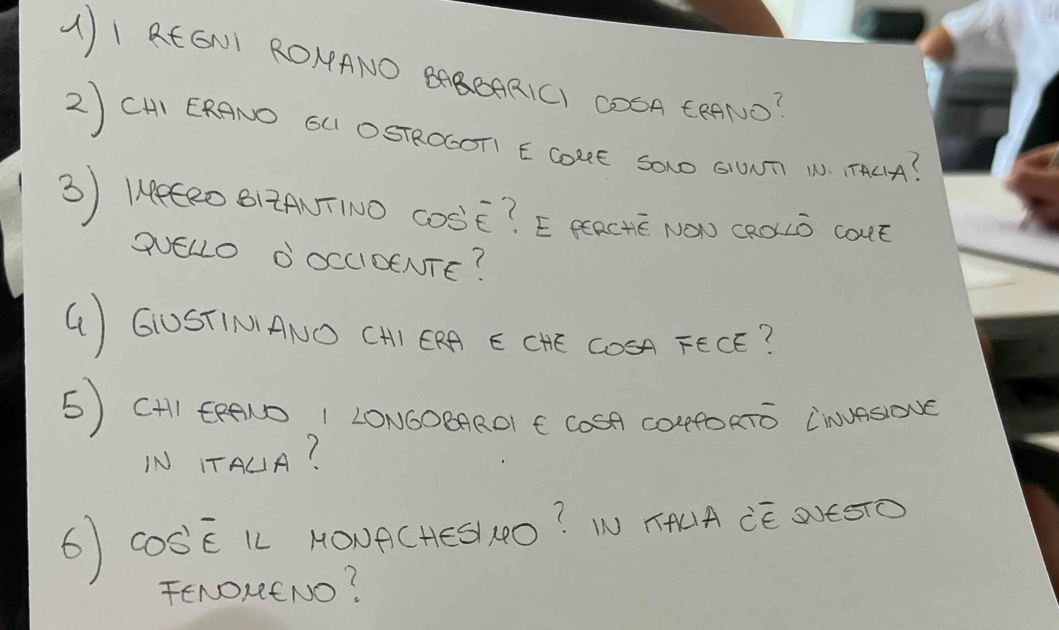 1) I REGNI ROMANO BARBARICI COSA ERANO?
2) CHI ERANO GLI OSTROGOTI E COME SONO GIUNTI IN ITALIA?
3) IMPERO BIZANTINO COS'È? E PERCHÈ NON CROLLÒ COME
QUELLO D'OCCIDENTE?
4) GIUSTINIANO CHI ERA E CHE COSA FECE?
5) CHI ERANO I LONGOBARDI E COSA COMPORTÒ L'INVASIONE
IN ITALIA?
6) COS'È IL MONACHESIMO? IN ITALIA C'È QUESTO
FENOMENO?